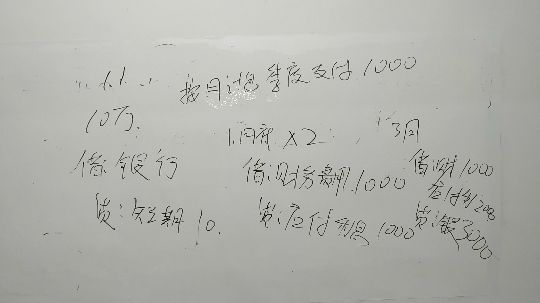 按月计提 季度支付 1000
10万
1.月底 ×2 3月
借:银行 借:财务费用 1000 借:财费 1000
应付利 2000
贷:短期 10. 贷:应付利息 1000 贷:银 3000